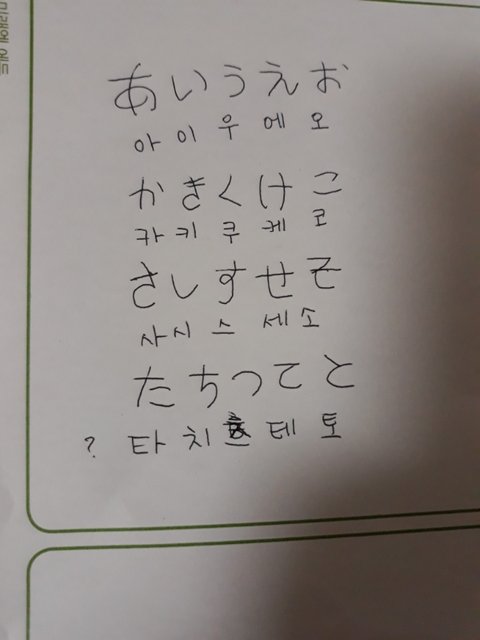 あいうえお
아 이 우 에 오
かきくけこ
카 키 쿠 케 코
さしすせそ
사 시 스 세 소
たちつてと
? 타 치 테 토